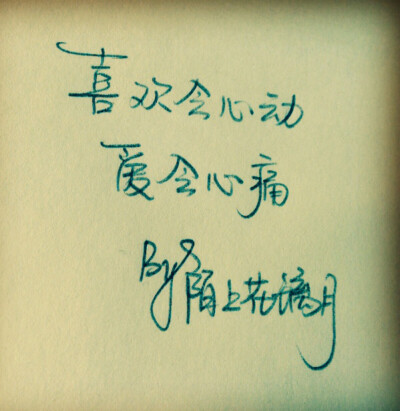 喜欢会心动
爱会心痛
By 陌上花漓月